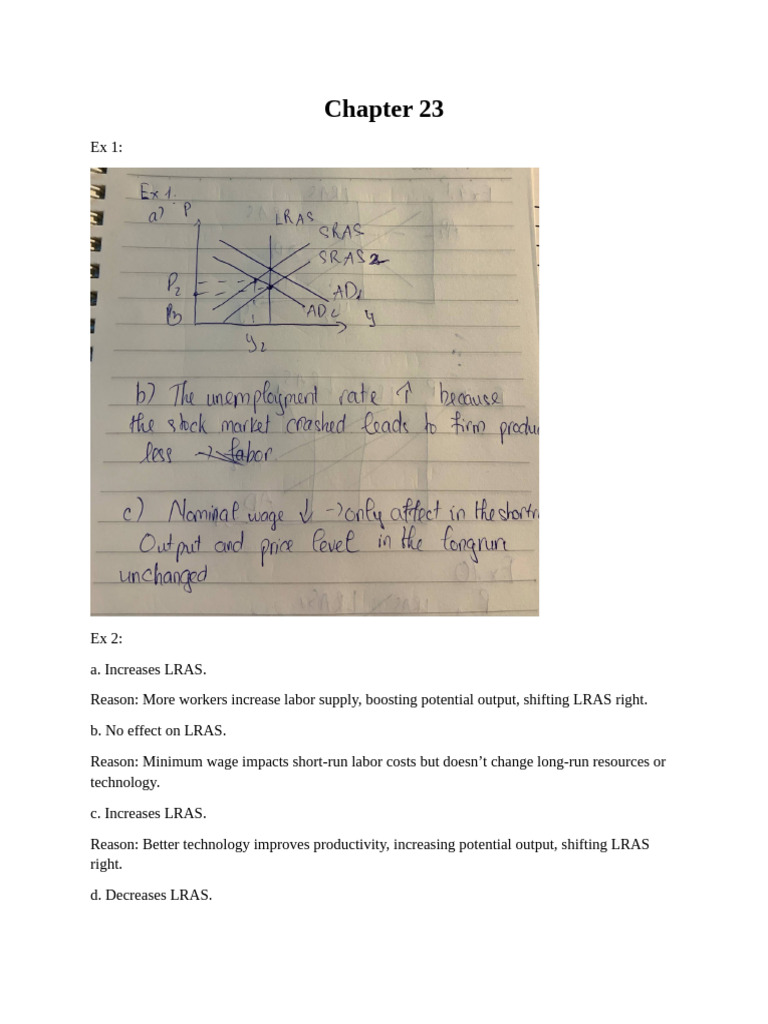 Chapter 23
Ex 1:
Ex 1.
a) P
LRAS
SRAS
SRAS2
P2
AD1
P3
AD2
y
y2
b) The unemployment rate ↑ because
the stock market crashed leads to firm produ
less → labor
c) Nominal wage ↓ → only affect in the shortr
Output and price level in the longrun
unchanged
Ex 2:
a. Increases LRAS.
Reason: More workers increase labor supply, boosting potential output, shifting LRAS right.
b. No effect on LRAS.
Reason: Minimum wage impacts short-run labor costs but doesn’t change long-run resources or
technology.
c. Increases LRAS.
Reason: Better technology improves productivity, increasing potential output, shifting LRAS
right.
d. Decreases LRAS.